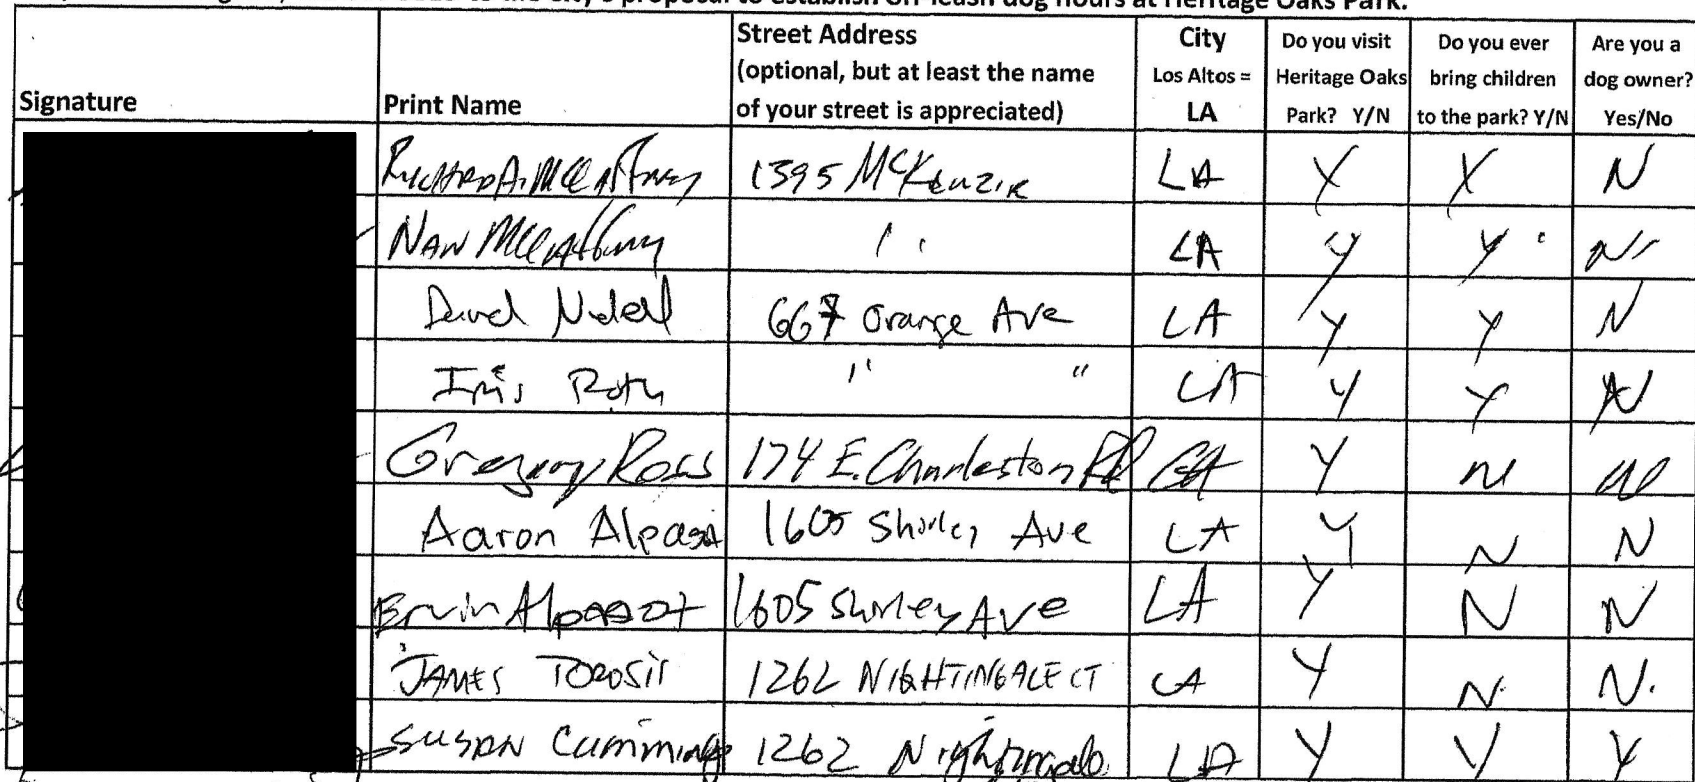 to the city's proposal to establish off-leash dog hours at Heritage Oaks Park.
Signature Print Name Street Address (optional, but at least the name of your street is appreciated) City Los Altos = LA Do you visit Heritage Oaks Park? Y/N Do you ever bring children to the park? Y/N Are you a dog owner? Yes/No
Richard A. McCaffrey 1395 McKenzie LA Y Y N
Nan McCaffrey " LA Y Y N
David 667 Orange Ave LA Y Y N
Iris Roth " " LA Y Y N
Gregory Ross 174 E. Charleston Rd Y N N
Aaron 1605 Shirley Ave LA Y N N
1605 Shirley Ave LA Y N N
JAMES 1262 NIGHTINGALE CT LA Y N. N.
SUSAN Cummings 1262 Nightingale LA Y Y Y